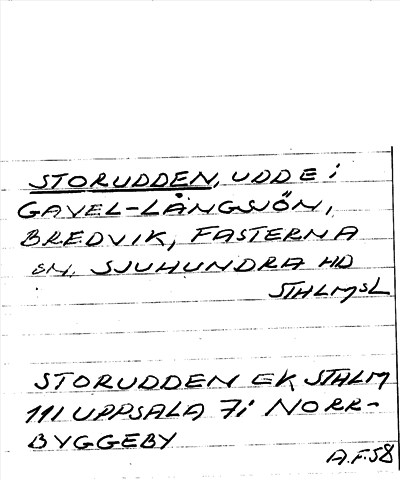 STORUDDEN, UDDE i
GAVEL-LÅNGSJÖN,
BREDVIK, FASTERNA
SN. SJUHUNDRA HD
STHLMSL
STORUDDEN EK STHLM
111 UPPSALA 7i NORR-
BYGGEBY
A.F.58